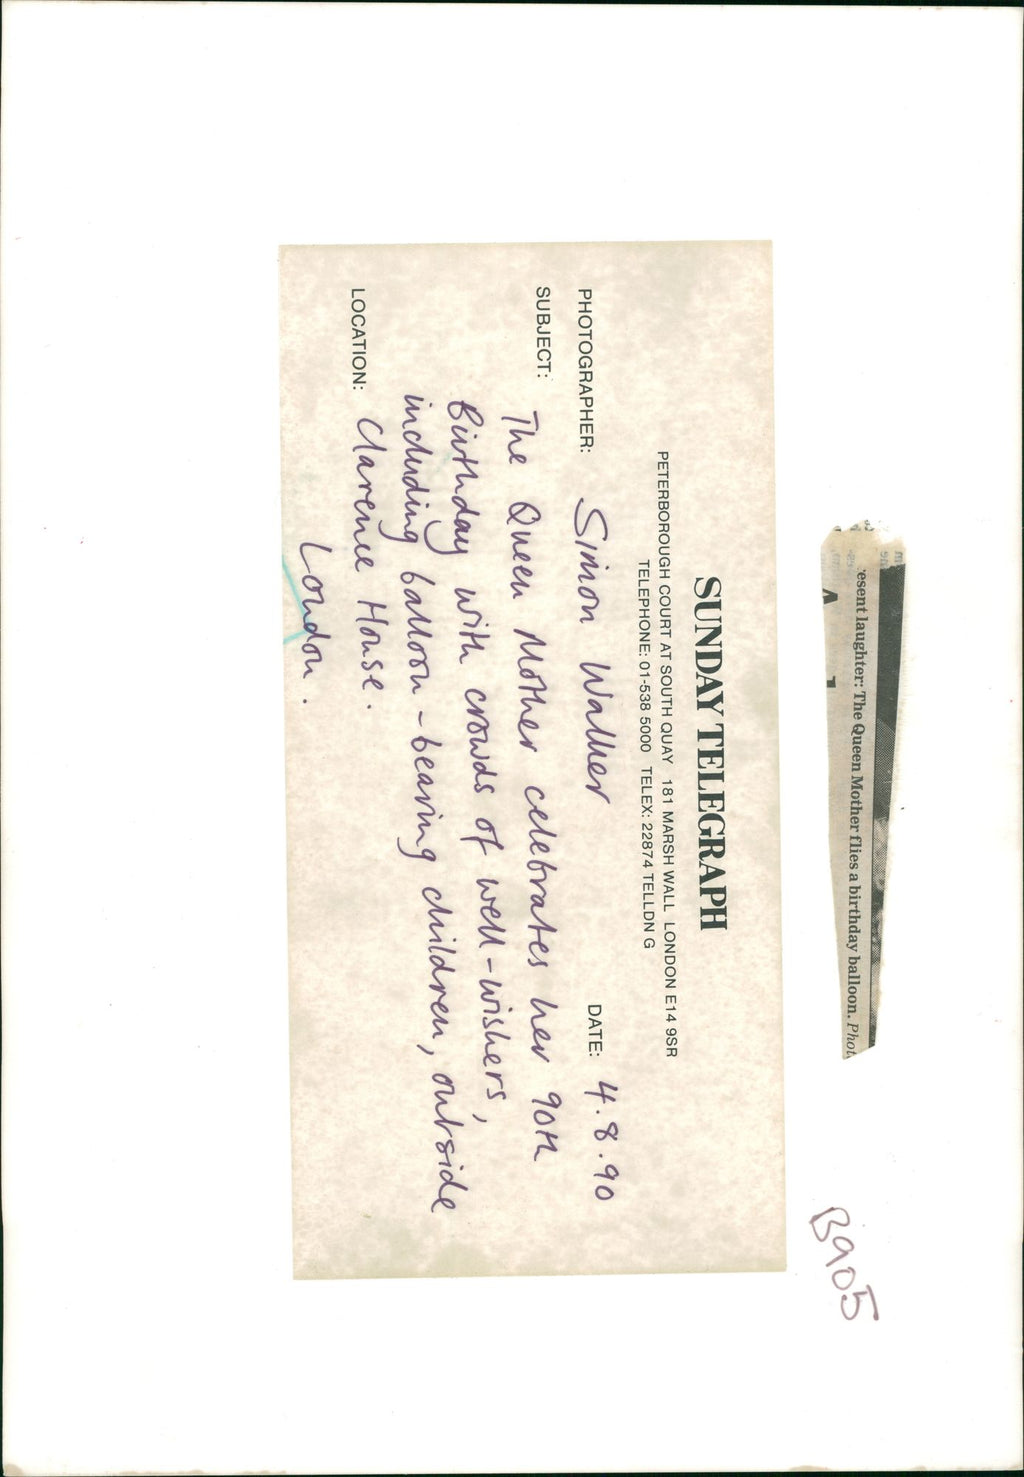 'esent laughter: The Queen Mother flies a birthday balloon. Phot
B905
SUNDAY TELEGRAPH
PETERBOROUGH COURT AT SOUTH QUAY 181 MARSH WALL LONDON E14 9SR
TELEPHONE: 01-538 5000 TELEX: 22874 TELLDN G
PHOTOGRAPHER: Simon Walker DATE: 4.8.90
SUBJECT: The Queen Mother celebrates her 90th
Birthday with crowds of well-wishers,
including balloon-bearing children, outside
LOCATION: Clarence House.
London.